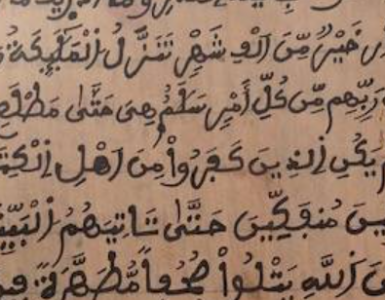 خَيْرٌ مِّنَ اَلْفِ شَهْرٍ تَنَزَّلُ اُلْمَلَٰٓئِكَةُ
رَبِّهِم مِّن كُلِّ أَمْرٍ سَلَٰمٌ هِيَ حَتَّىٰ مَطْلَعِ
يَكُنِ اِلذِينَ كَفَرُواْ مِنَ اَهْلِ اِلْكِتَ
ينَ مُنفَكِّينَ حَتَّىٰ تَاتِيَهُمُ اُلْبَيِّنَ
نَ اَللَّهِ يَتْلُواْ صُحُفاً مُّطَهَّرَةً فِي